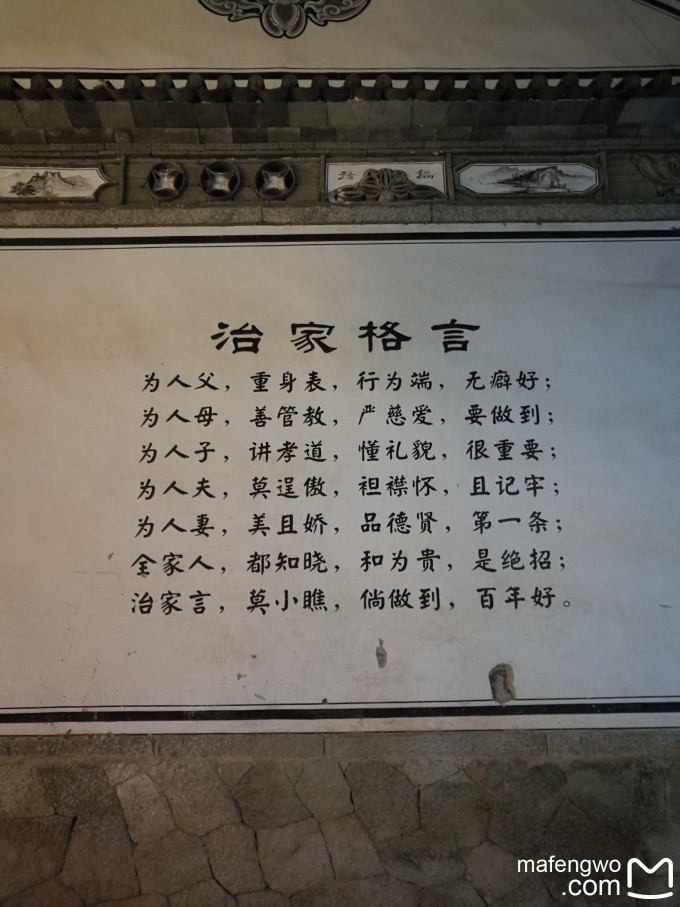 治家格言
为人父，重身表，行为端，无癖好；
为人母，善管教，严慈爱，要做到；
为人子，讲孝道，懂礼貌，很重要；
为人夫，莫逞傲，袒襟怀，且记牢；
为人妻，美且娇，品德贤，第一条；
全家人，都知晓，和为贵，是绝招；
治家言，莫小瞧，倘做到，百年好。
mafengwo
.com